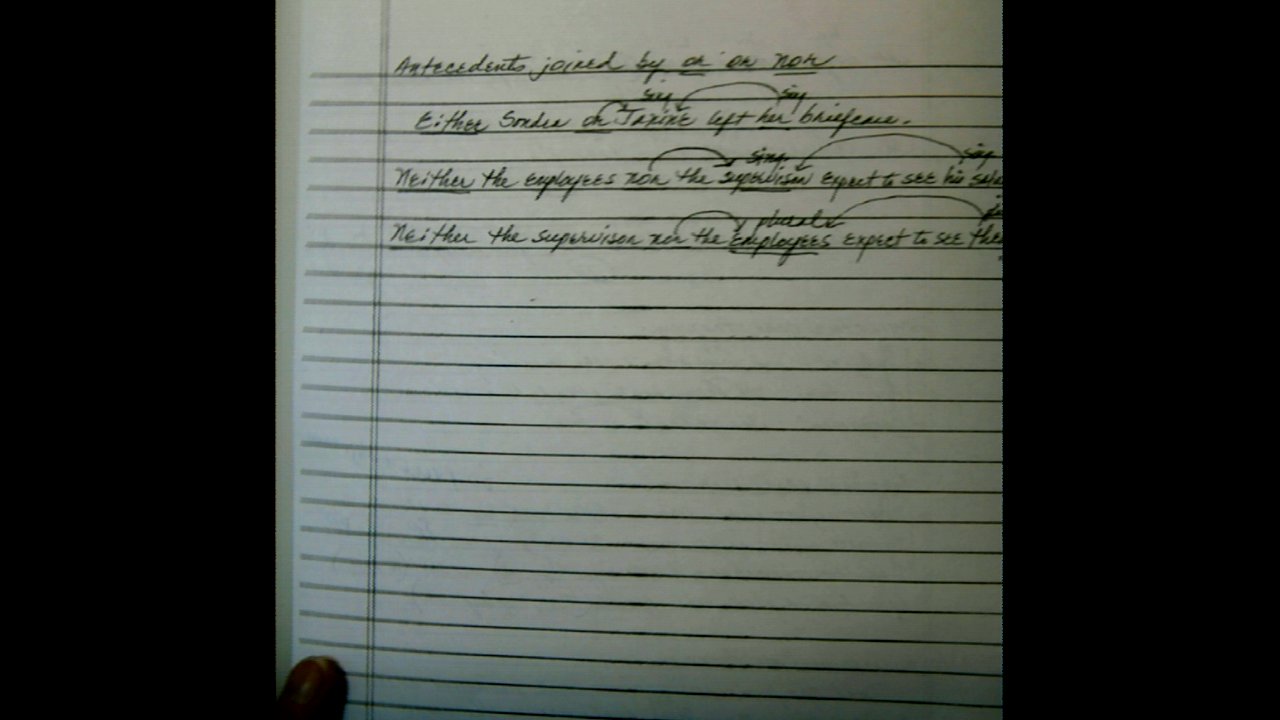 Antecedents joined by or or nor
sing sing
Either Sondra or Janine left her briefcase.
sing. sing
Neither the employees nor the supervisor expect to see his
plural
Neither the supervisor nor the employees expect to see